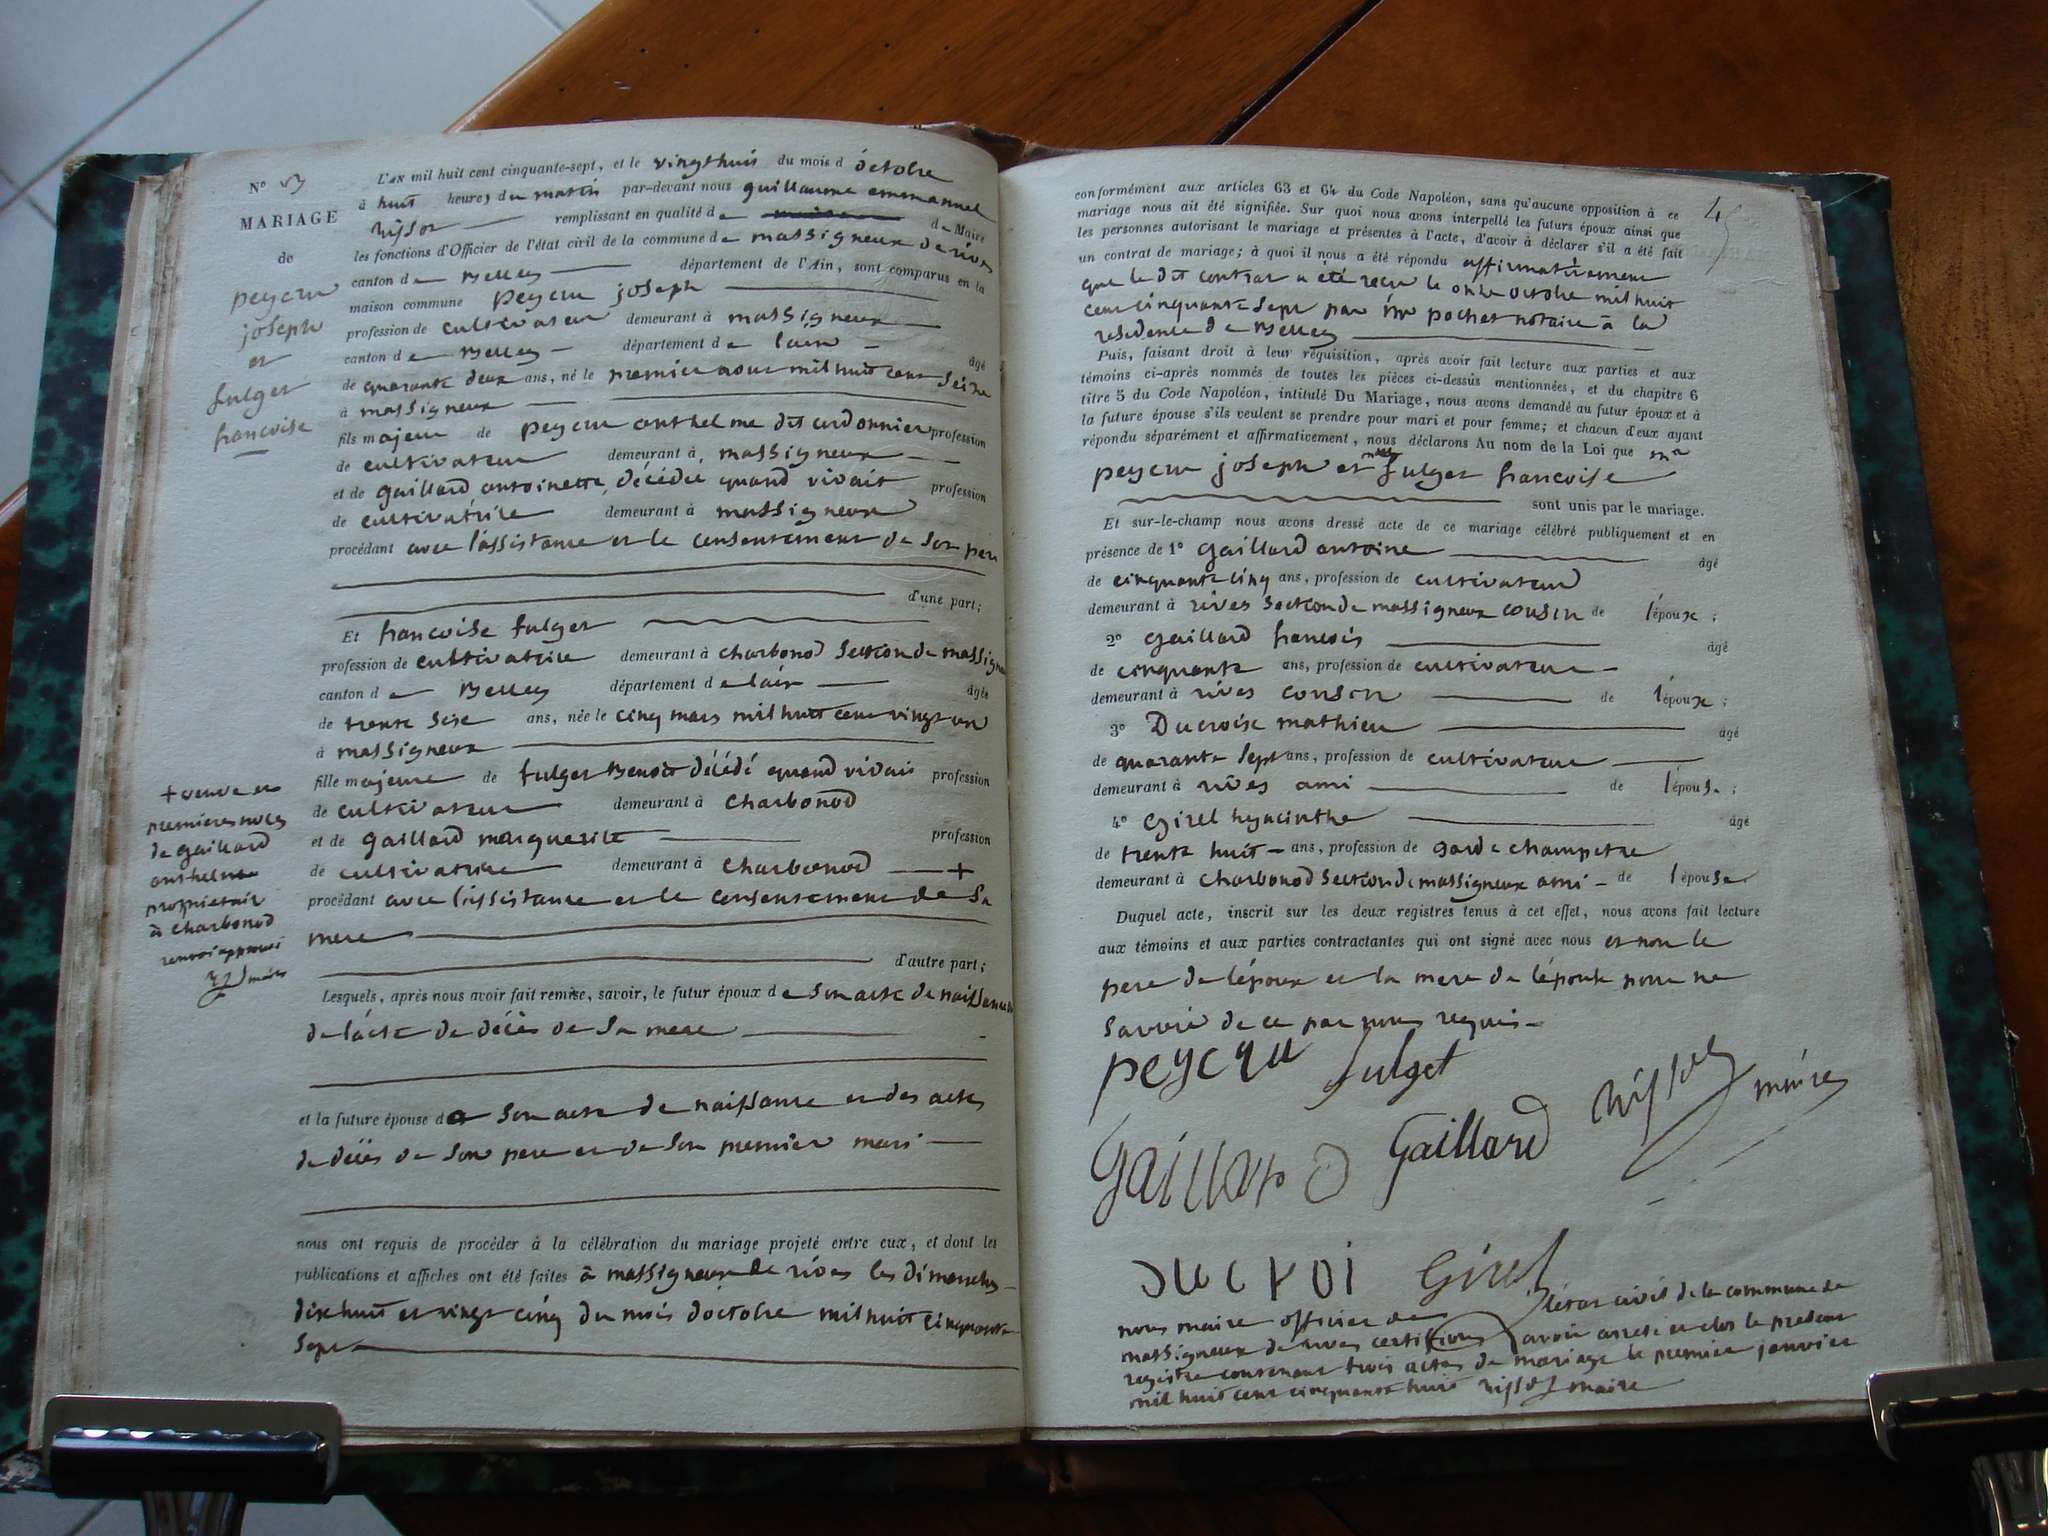 N° 3
MARIAGE
de
peycru
joseph
et
fulget
francoise
L'AN mil huit cent cinquante-sept, et le vingthuit du mois d octobre
à huit heures du matin par-devant nous guillaume emmanuel
remplissant en qualité de de Maire
les fonctions d'Officier de l'état civil de la commune de massigneux de rives
canton de Belley département de l'Ain, sont comparus en la
maison commune peycru joseph
profession de cultivateur demeurant à massigneux
canton de Belley département de lain âgé
de quarante deux ans, né le premier aout mil huit cent seize
à massigneux
fils majeur de peycru anthelme dit cordonnier profession
de cultivateur demeurant à massigneux
et de gaillard antoinette décédée quand vivait profession
de cultivatrice demeurant à massigneux
procédant avec l'assistance et le consentement de son pere
d'une part;
Et francoise fulget
profession de cultivatrice demeurant à charbonod section de massigneux
canton de Belley département de lain âgée
de trente seise ans, née le cinq mars mil huit cent vingt un
à massigneux
fille majeure de fulget Benoit décédé quand vivait profession
de cultivateur demeurant à charbonod
et de gaillard marguerite profession
de cultivatrice demeurant à charbonod +
procédant avec l'assistance et le consentement de sa
mere
d'autre part;
+ veuve en
premieres noces
de gaillard
anthelme
proprietair
à charbonod
renvoi approuvé
maire
Lesquels, après nous avoir fait remise, savoir, le futur époux de son acte de naissance
de l'acte de décès de sa mere
et la future épouse de son acte de naissance et des actes
de décès de son pere et de son premier mari
nous ont requis de procéder à la célébration du mariage projeté entre eux, et dont les
publications et affiches ont été faites à massigneux de rives les dimanches
dix huit et vingt cinq du mois d'octobre mil huit cinquante
sept
45
conformément aux articles 63 et 64 du Code Napoléon, sans qu'aucune opposition à ce
mariage nous ait été signifiée. Sur quoi nous avons interpellé les futurs époux ainsi que
les personnes autorisant le mariage et présentes à l'acte, d'avoir à déclarer s'il a été fait
un contrat de mariage; à quoi il nous a été répondu affirmativement
que le dit contrat a été recu le onze octobre mil huit
cent cinquante sept par me pochet notaire à la
residence de Belley
Puis, faisant droit à leur réquisition, après avoir fait lecture aux parties et aux
témoins ci-après nommés de toutes les pièces ci-dessus mentionnées, et du chapitre 6
titre 5 du Code Napoléon, intitulé Du Mariage, nous avons demandé au futur époux et à
la future épouse s'ils veulent se prendre pour mari et pour femme; et chacun d'eux ayant
répondu séparément et affirmativement, nous déclarons Au nom de la Loi que
peycru joseph et fulget francoise
sont unis par le mariage.
Et sur-le-champ nous avons dressé acte de ce mariage célébré publiquement et en
présence de 1° gaillard antoine âgé
de cinquante cinq ans, profession de cultivateur
demeurant à rives section de massigneux cousin de l'époux;
2° gaillard francois âgé
de cinquante ans, profession de cultivateur
demeurant à rives cousin de l'époux;
3° Ducroix mathieu âgé
de quarante sept ans, profession de cultivateur
demeurant à rives ami de l'épouse;
4° girel hyacinthe âgé
de trente huit ans, profession de garde champetre
demeurant à charbonod section de massigneux ami de l'épouse
Duquel acte, inscrit sur les deux registres tenus à cet effet, nous avons fait lecture
aux témoins et aux parties contractantes qui ont signé avec nous et non le
pere de l'époux et la mere de l'épouse pour ne
savoir de ce par nous requis
peycru fulget
maire
gaillard Gaillard
ducroi Girel
nous maire officier de l'état civil de la commune de
massigneux de rives certifions avoir arreté et clos le présent
registre contenant trois actes de mariage le premier janvier
mil huit cent cinquante huit maire